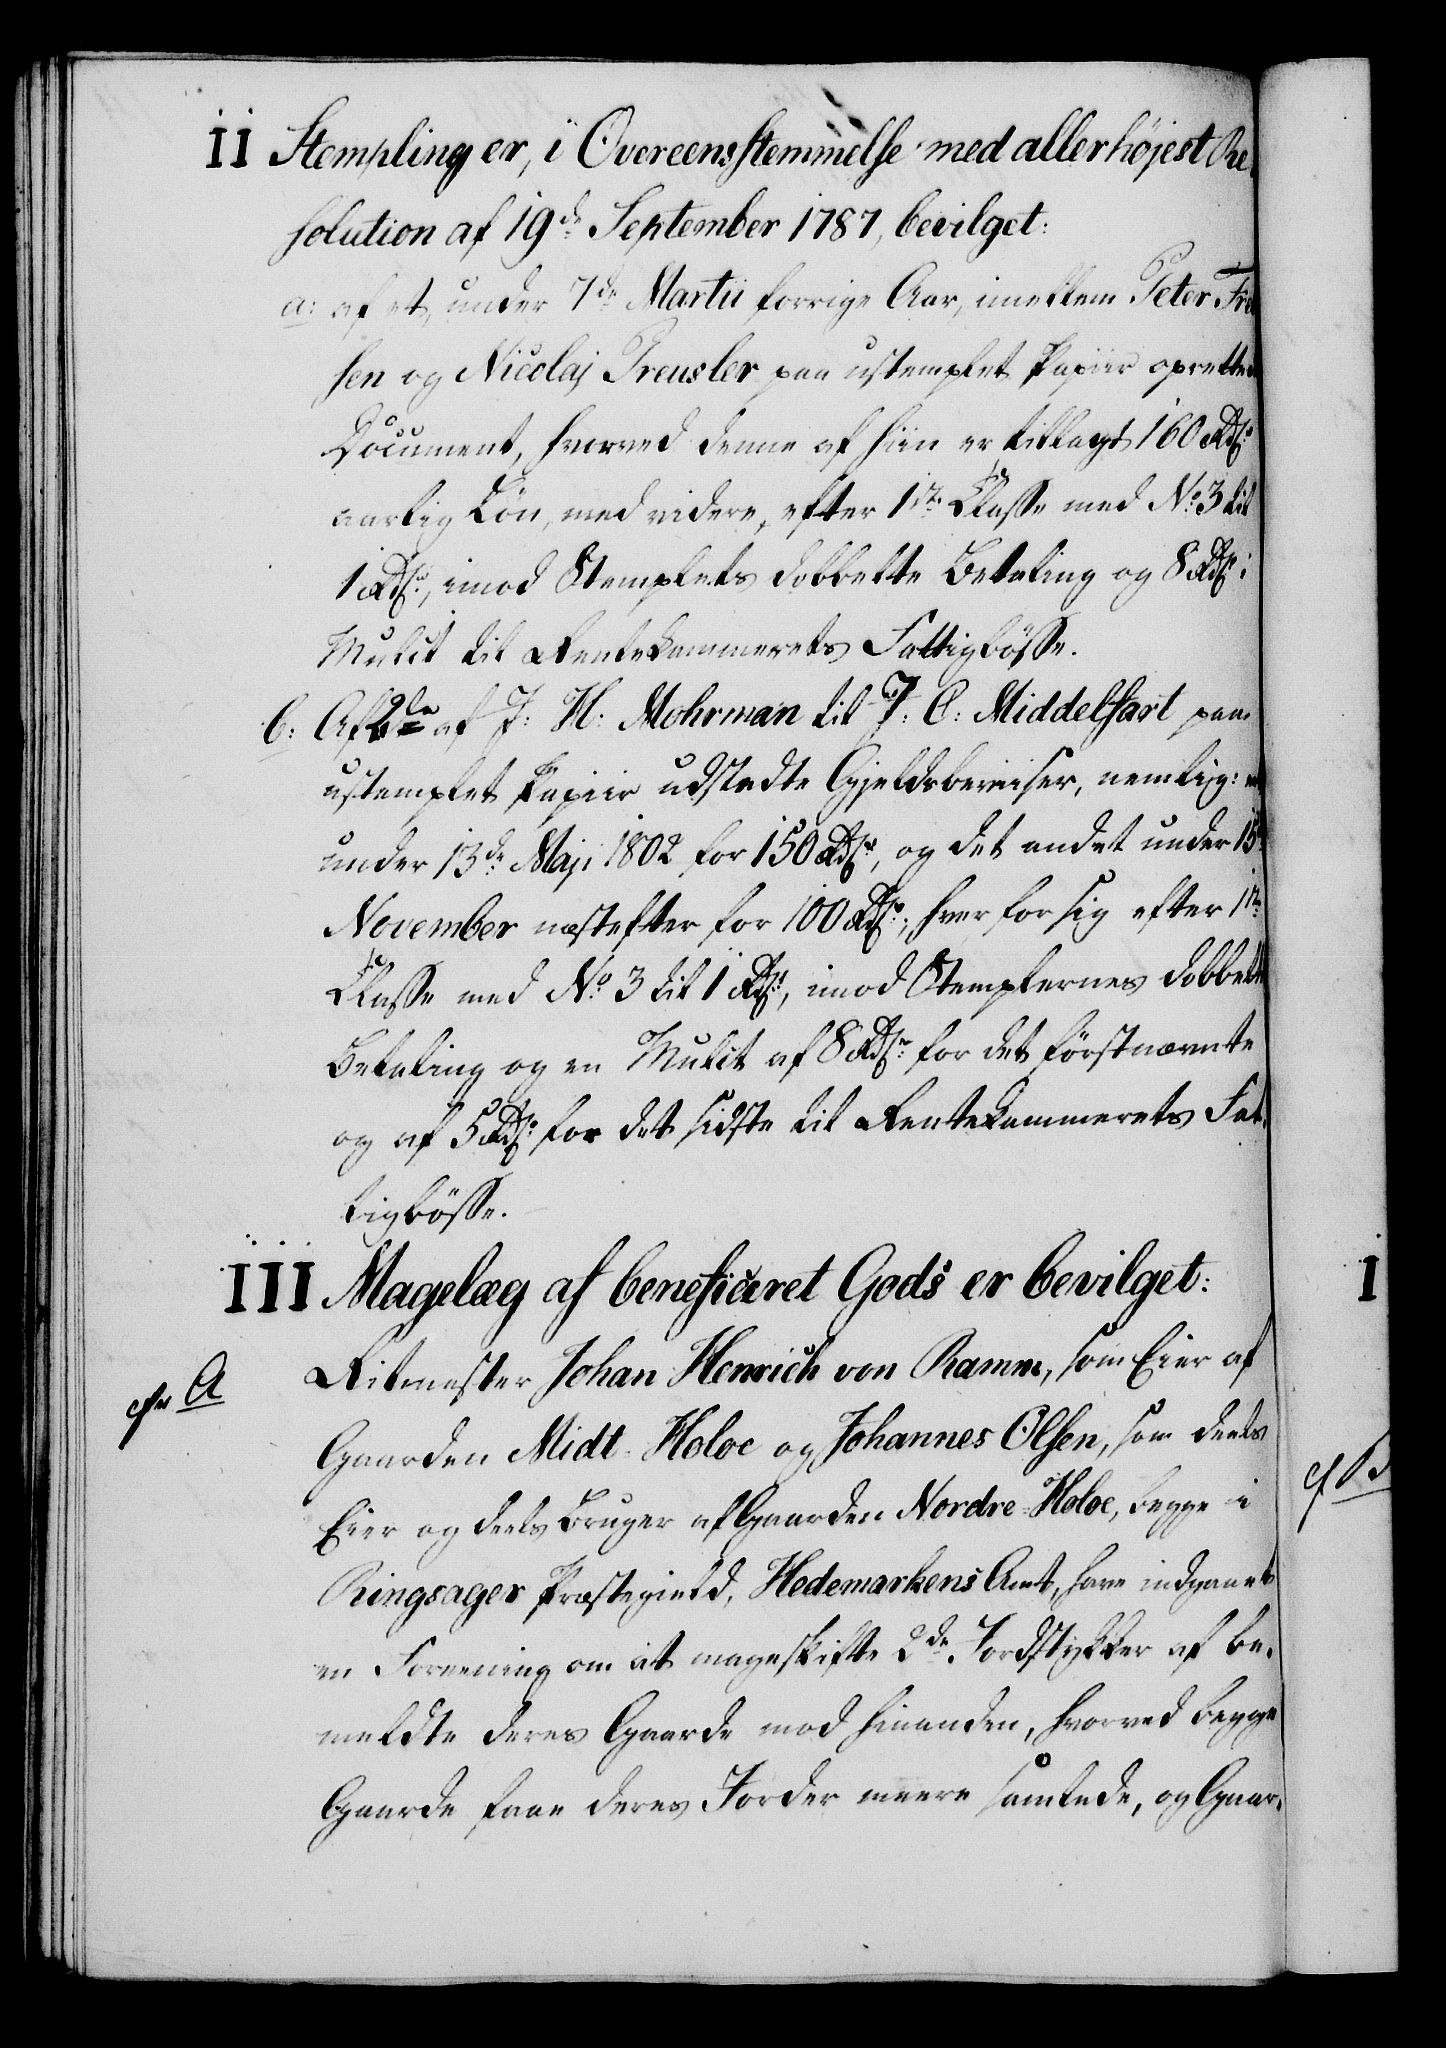 II Stempling er, i Overeensstemmelse med allerhøjest Re-
solution af 19de September 1787, bevilget:
a: af et, under 7de Martii forrige Aar, imellem Peter
sen og Nicolaj Preusler paa ustemplet Papiir oprettet
Document, hvorved denne af hiin er tillagt 160 Rdr
aarlig Løn, med videre, efter 1ste Classe med No 3 til
1 Rdr, imod Stemplets dobbelte Betaling og 8 Rdr i
Mulct til Rentekammerets Fattigbøsse.
b: Af 2de af J: H: Mohrman til J: C: Middelfart paa
ustemplet Papiir udstedte Gjeldsbeviiser, nemlig: et
under 13de Maji 1802 for 150 Rdr, og det andet under 15de
November næstefter for 100 Rdr, hver for sig efter 1ste
Classe med No 3 til 1 Rdr, imod Stemplernes dobbelte
Betaling og en Mulct af 8 Rdr for det førstnævnte
og af 5 Rdr for det sidste til Rentekammerets Fat-
tigbøsse.
III Magelæg af beneficeret Gods er bevilget:
cfr A Ritmester Johan Henrich von Ramm, som Eier af
Gaarden Midt-Holoe og Johannes Olsen, som deels
Eier og deels Bruger af Gaarden Nordre-Holoe, begge i
Ringsager Præstegield, Hedemarkens Amt, have indgaaet
en Forening om at mageskifte 2de Jordstykker af be-
meldte deres Gaarde mod hinanden, hvorved begge
Gaarde faae deres Jorder meere samlede, og Gaar-
I
cf B